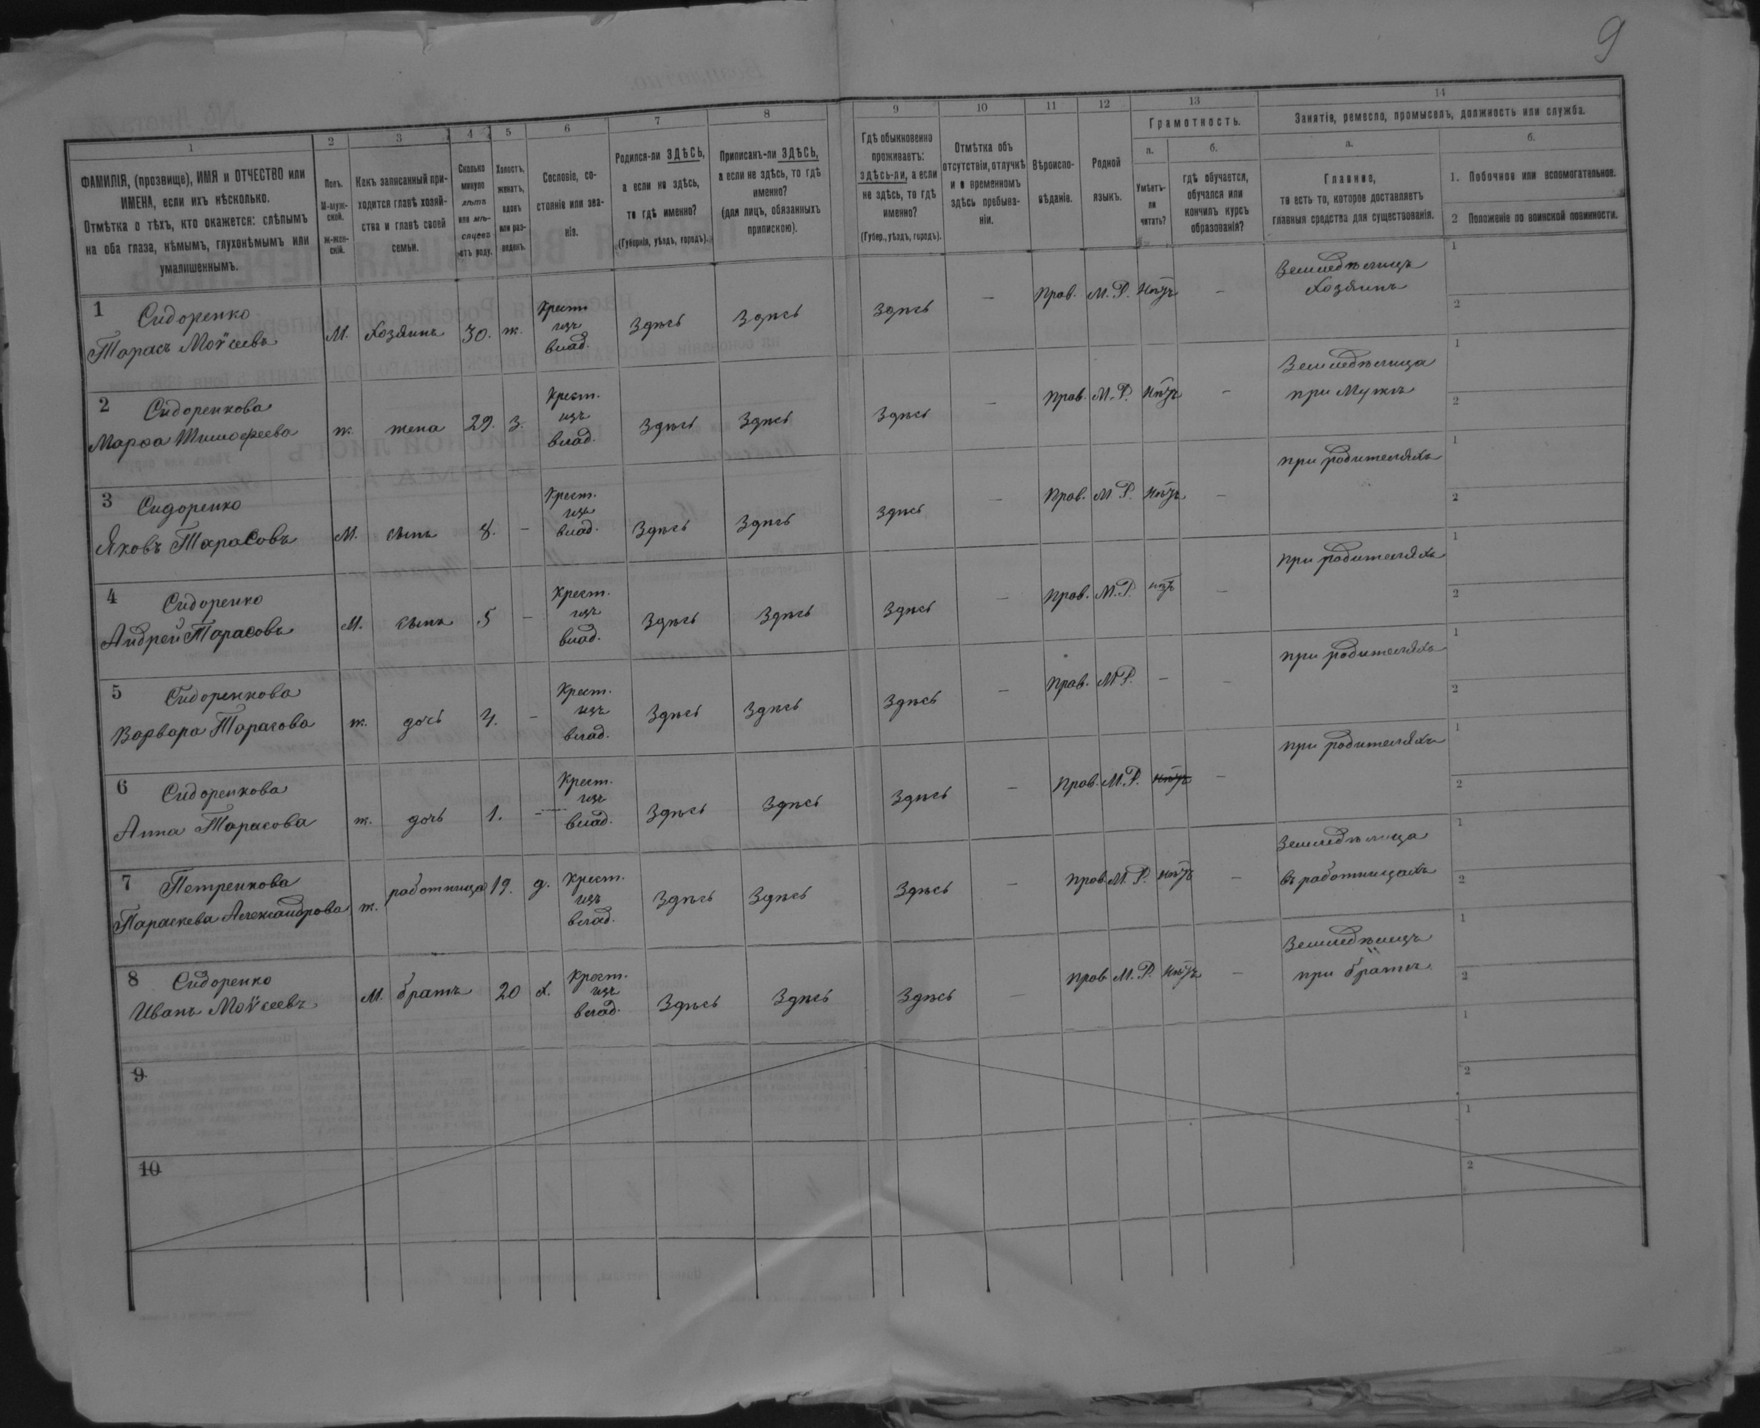 9
1
2
3
4
5
6
7
8
9
10
11
12
13
14
ФАМИЛІЯ, (прозвище), ИМЯ и ОТЧЕСТВО или
ИМЕНА, если ихъ нѣсколько.
Отмѣтка о тѣхъ, кто окажется: слѣпымъ
на оба глаза, нѣмымъ, глухонѣмымъ или
умалишеннымъ.
Полъ.
М-муж-
ской.
Ж-жен-
скій.
Какъ записанный при-
ходится главѣ хозяй-
ства и главѣ своей
семьи.
Сколько
минуло
лѣтъ
или мѣ-
сяцевъ
отъ роду.
Холостъ,
женатъ,
вдовъ
или раз-
веденъ.
Сословіе, со-
стояніе или зва-
ніе.
Родился-ли ЗДѢСЬ,
а если не здѣсь,
то гдѣ именно?
(Губернія, уѣздъ, городъ).
Приписанъ-ли ЗДѢСЬ,
а если не здѣсь, то гдѣ
именно?
(для лицъ, обязанныхъ
припискою).
Гдѣ обыкновенно
проживаетъ:
ЗДѢСЬ-ли, а если
не здѣсь, то гдѣ
именно?
(Губер., уѣздъ, городъ).
Отмѣтка объ
отсутствіи, отлучкѣ
и о временномъ
здѣсь пребыва-
ніи.
Вѣроиспо-
вѣданіе.
Родной
языкъ.
Грамотность.
а.
Умѣетъ-
ли
читать?
б.
гдѣ обучается,
обучался или
кончилъ курсъ
образованія?
Занятія, ремесло, промыселъ, должность или служба.
а.
Главное,
то есть то, которое доставляетъ
главныя средства для существованія.
б.
1. Побочное или вспомогательное.
2 Положеніе по воинской повинности.
1 Сидоренко
Тарасъ Моѵсеевъ
М. Хозяинъ 30. ж. Крест. изъ влад. Здѣсь Здѣсь Здѣсь — Прав. М.Р. Нѣтъ — Земледѣлецъ Хозяинъ 1 2
2 Сидоренкова
Марѳа Тимофеева
ж. жена 29. З. Крест. изъ влад. Здѣсь Здѣсь Здѣсь — Прав. М.Р. Нѣтъ — Земледѣлица при Мужѣ 1 2
3 Сидоренко
Яковъ Тарасовъ
М. сынъ 8. — Крест. изъ влад. Здѣсь Здѣсь Здѣсь — Прав. М.Р. Нѣтъ — при родителяхъ 1 2
4 Сидоренко
Андрей Тарасовъ
М. сынъ 5 — Крест. изъ влад. Здѣсь Здѣсь Здѣсь — Прав. М.Р. нѣтъ — при родителяхъ 1 2
5 Сидоренкова
Варвара Тарасова
ж. дочь — Крест. изъ влад. Здѣсь Здѣсь Здѣсь — Прав. М.Р. — — при родителяхъ 1 2
6 Сидоренкова
Анна Тарасова
ж. дочь 1. — Крест. изъ влад. Здѣсь Здѣсь Здѣсь — Прав. М.Р. нѣтъ — при родителяхъ 1 2
7 Петренкова
Параскева Александрова
ж. работница 19. д. Крест. изъ влад. Здѣсь Здѣсь Здѣсь — Прав М.Р. нѣтъ — Земледѣлица въ работницахъ 1 2
8 Сидоренко
Иванъ Моѵсеевъ
М. братъ 20 х. Крест. изъ влад. Здѣсь Здѣсь Здѣсь — Прав М.Р. Нѣтъ — Земледѣлецъ при братѣ 1 2
9 1 2
10 1 2